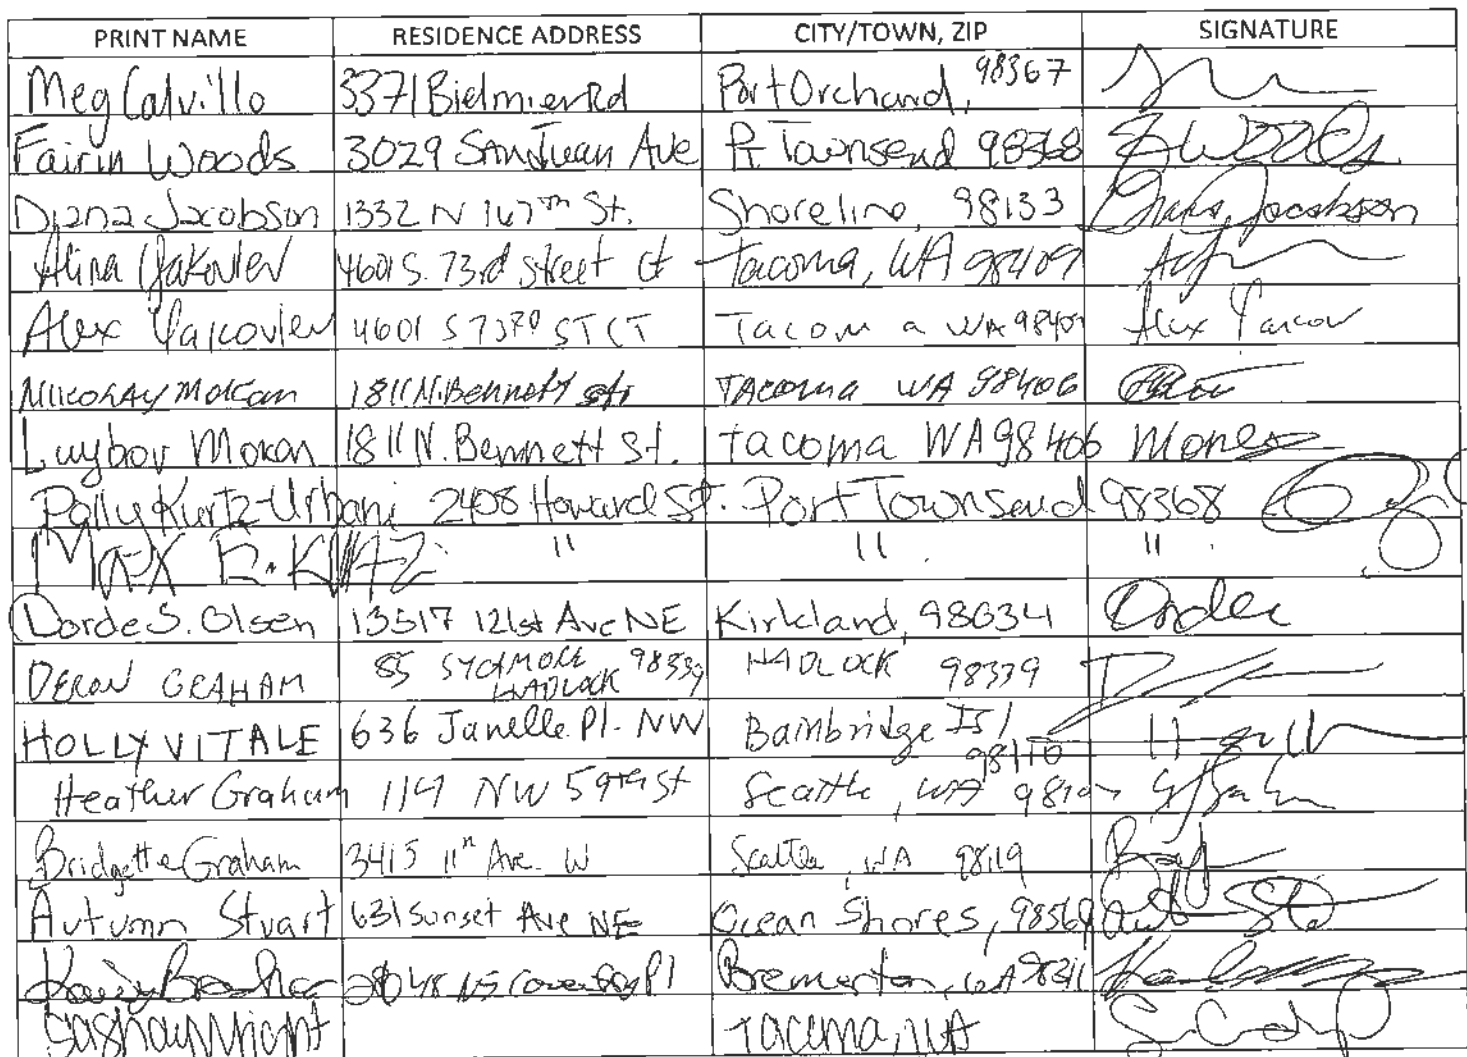 PRINT NAME RESIDENCE ADDRESS CITY/TOWN, ZIP SIGNATURE
Meg Calvillo 3371 Bielmier Rd Port Orchard, 98367
Fairin Woods 3029 San Juan Ave Pt Townsend 98368 F Woods
Diana Jacobson 1332 N 167th St. Shoreline, 98133 Diana Jacobson
Alina Yakovlev 4601 S. 73rd Street Ct Tacoma, WA 98409
Alex Yakovlev 4601 S 73RD ST CT Tacoma WA 98409 Alex Yakov
Nikolay Mokan 1811 N. Bennett str TAcoma WA 98406
Luybov Mokan 1811 N. Bennett St. Tacoma WA 98406
Polly Kurtz-Urbani 2408 Howard St. Port Townsend 98368
Max E. Kurtz " " "
Dorde S. Olsen 13517 121st Ave NE Kirkland, 98034
DERON GRAHAM 85 SYCAMORE HADLOCK 98339 HADLOCK 98339
HOLLY VITALE 636 Janelle Pl. NW Bainbridge Isl 98110
Heather Graham 1119 NW 59th St Seattle, WA 98107
Bridgette Graham 3415 11th Ave. W Seattle, WA 98119
Autumn Stuart 631 Sunset Ave NE Ocean Shores, 98569
NE Coventry Pl Bremerton, WA 98311
Sashay Wright Tacoma, WA